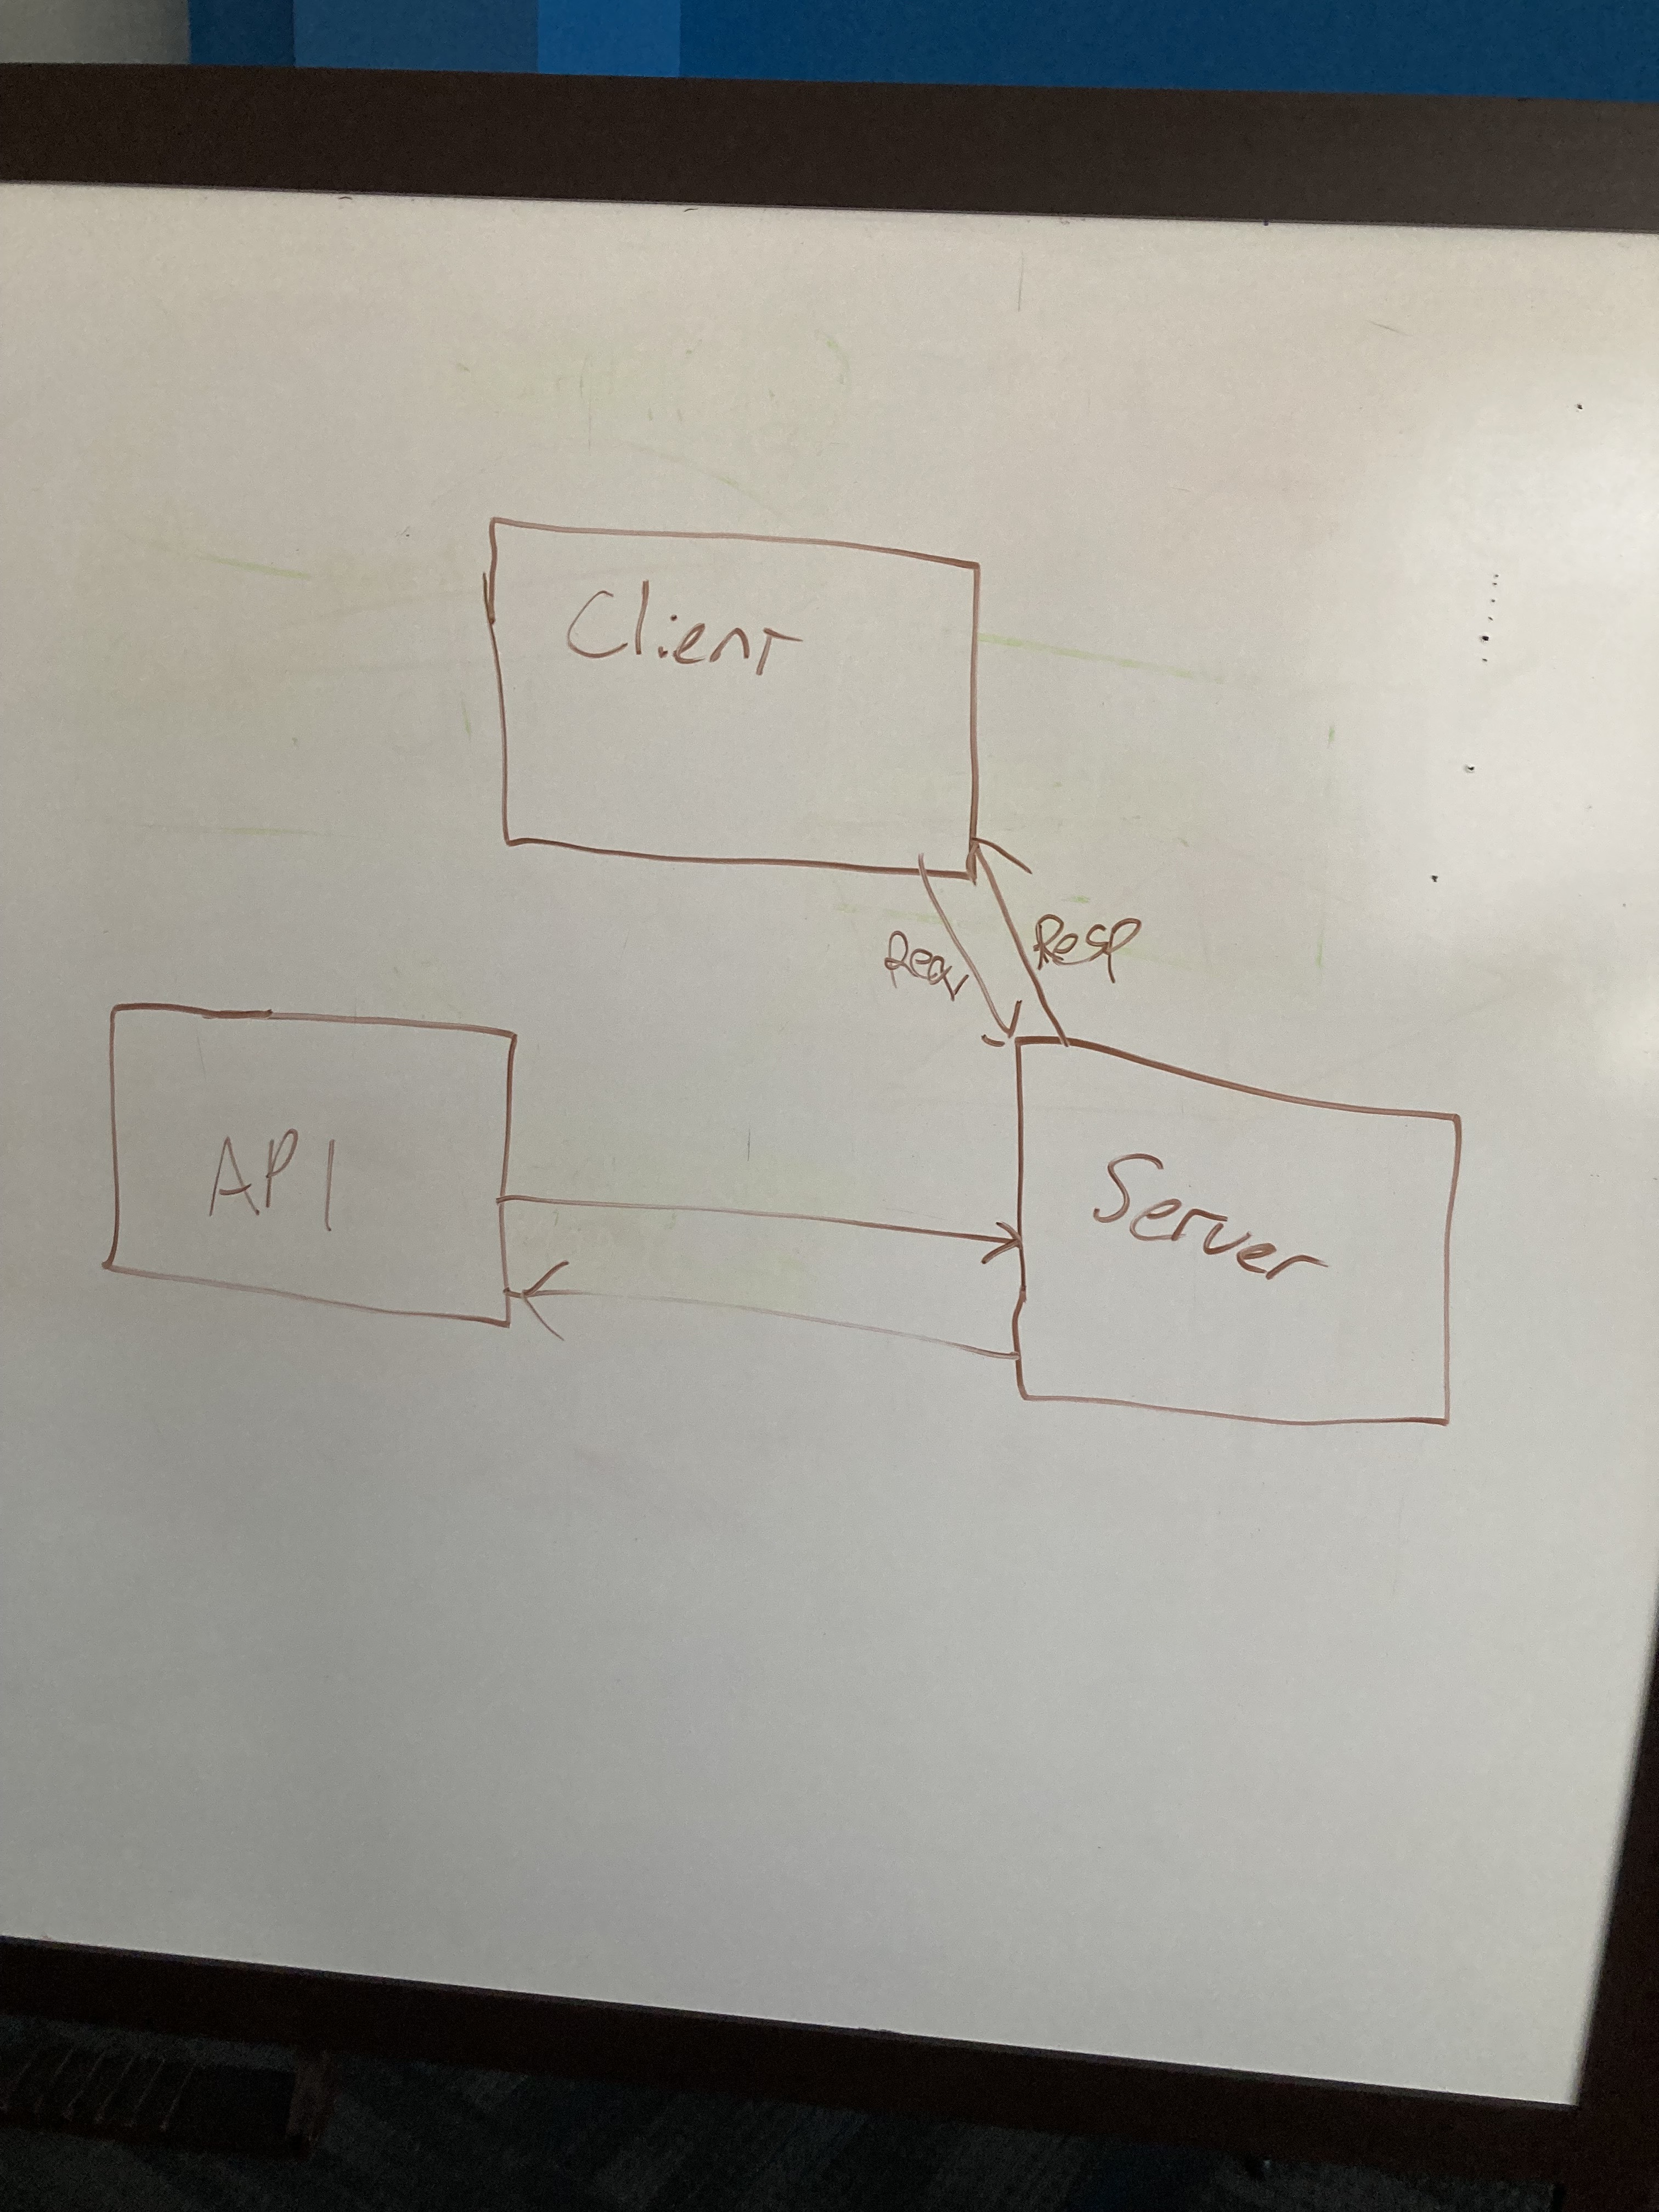 Client
Requ
Resp
API
Server